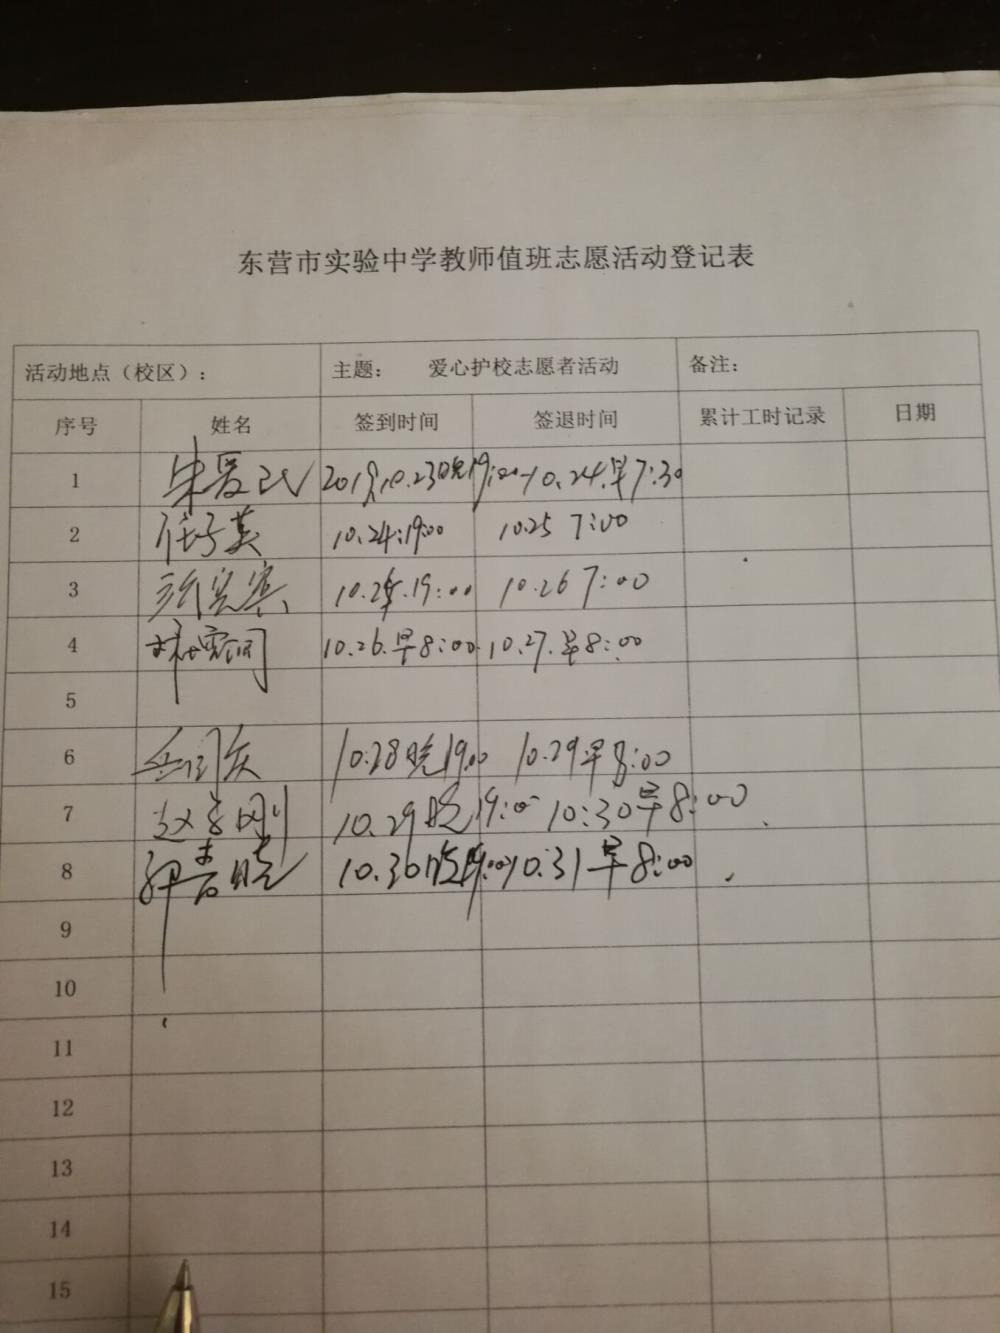 东营市实验中学教师值班志愿活动登记表
活动地点（校区）： 主题： 爱心护校志愿者活动 备注：
序号 姓名 签到时间 签退时间 累计工时记录 日期
1 朱爱民 2019.10.23晚19:00-10.24.早7:30
2 任子英 10.24:19:00 10.25 7:00
3 10.25.19:00 10.26 7:00
4 10.26.早8:00 10.27.早8:00
5
6 10.28晚19:00 10.29早8:00
7 赵学刚 10.29晚19:00 10:30早8:00
8 10.30晚19:00 10.31早8:00
9
10
11
12
13
14
15